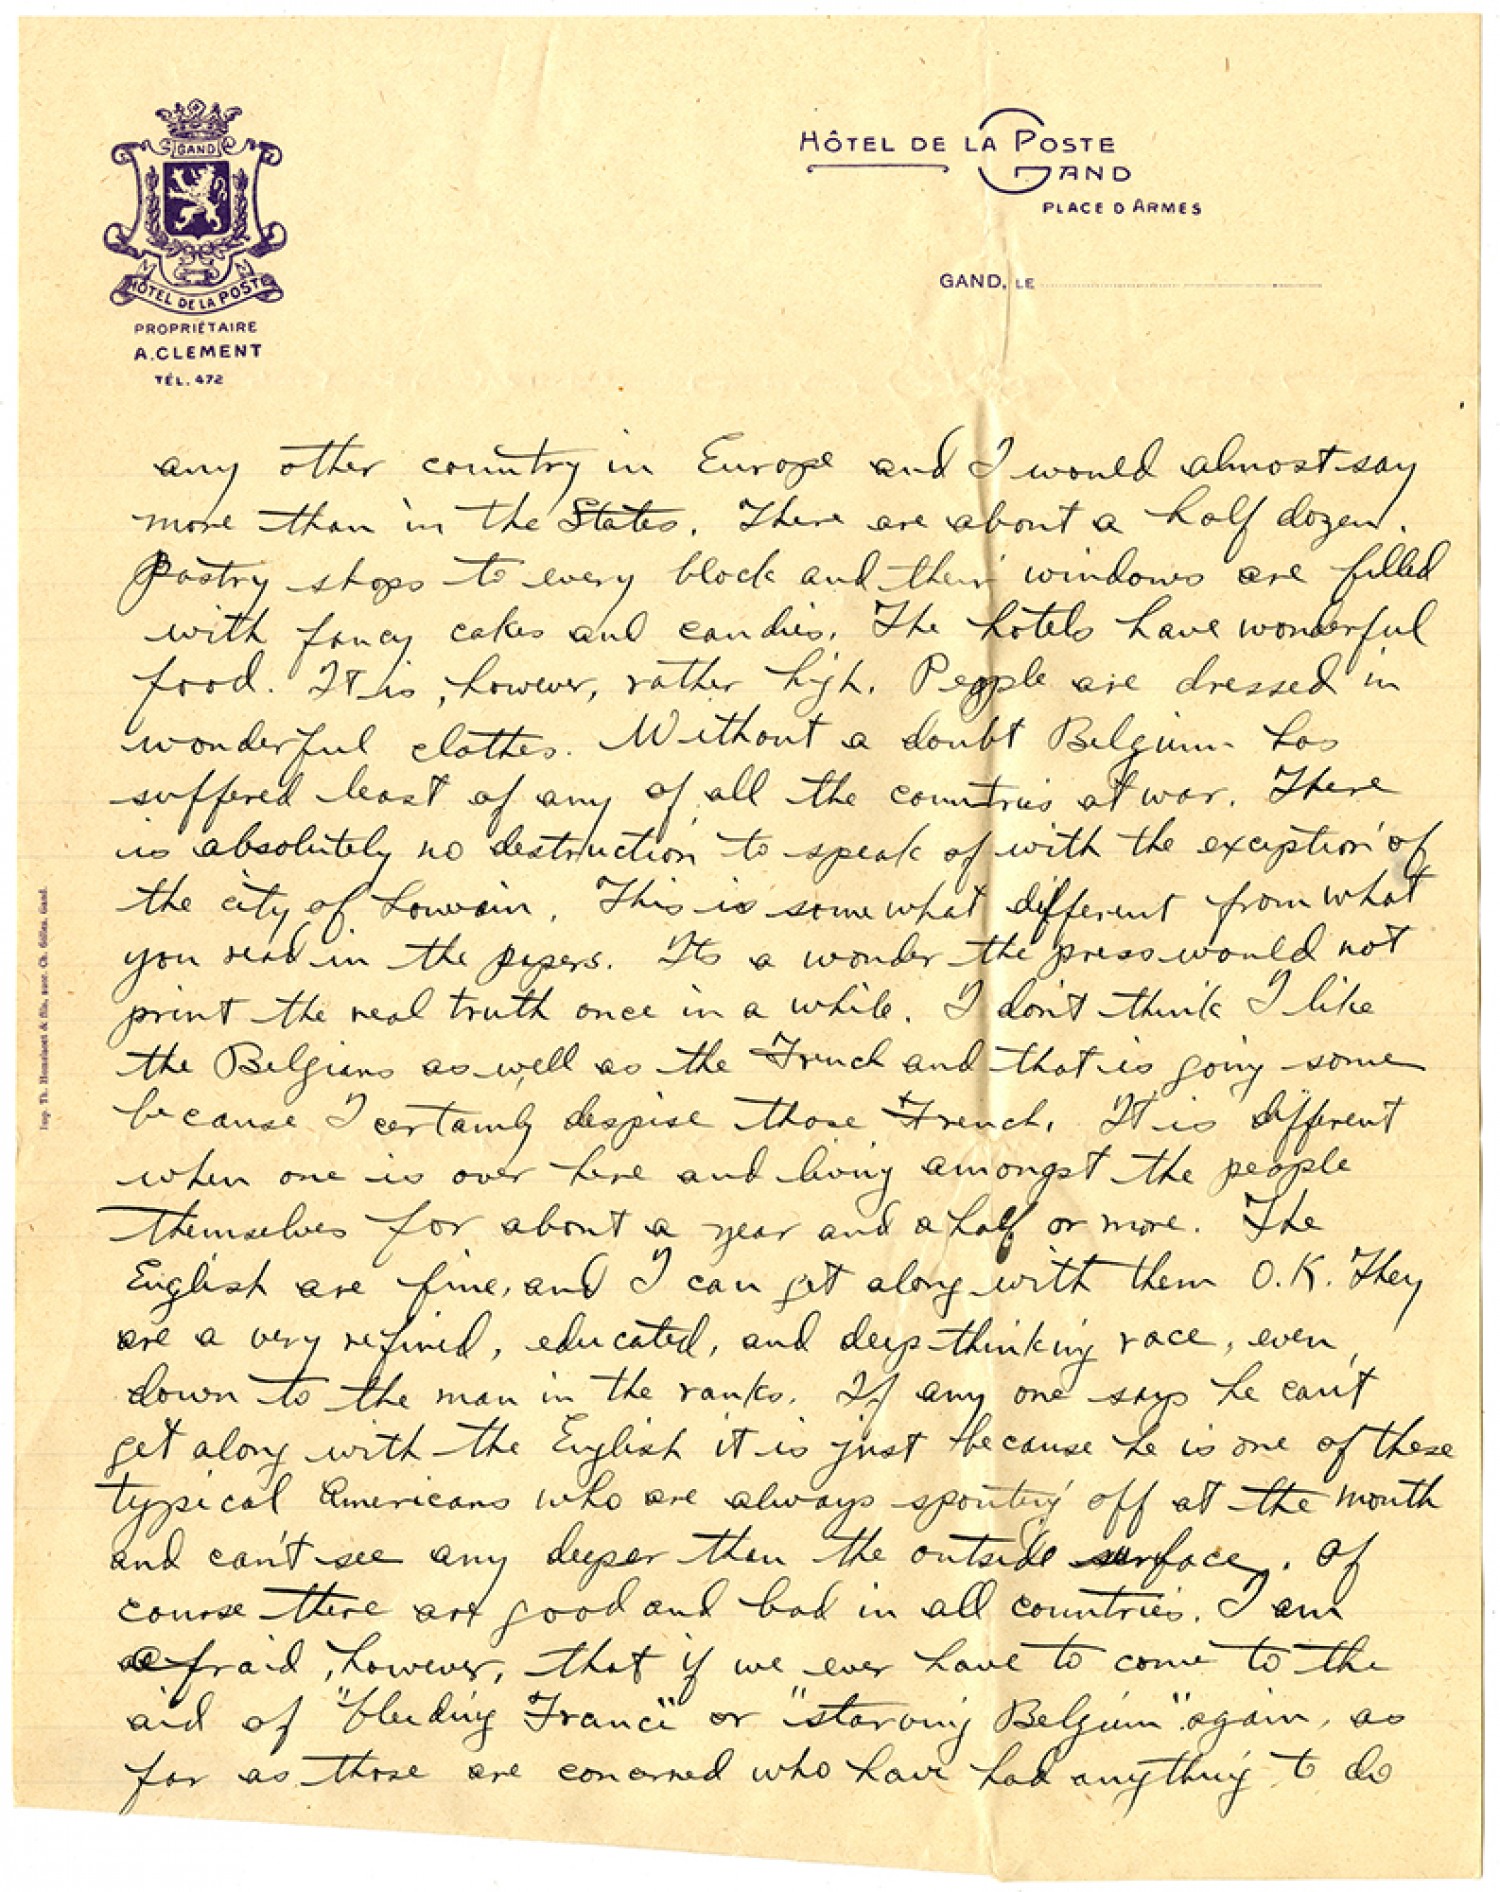 GAND
HÔTEL DE LA POSTE
PROPRIÉTAIRE
A. CLEMENT
TÉL. 472
HÔTEL DE LA POSTE
GAND
PLACE D ARMES
GAND, LE
any other country in Europe and I would almost say
more than in the States. There are about a half dozen.
Pastry shops to every block and their windows are filled
with fancy cakes and candies. The hotels have wonderful
food. It is, however, rather high. People are dressed in
wonderful clothes. Without a doubt Belgium has
suffered least of any of all the countries at war. There
is absolutely no destruction to speak of with the exception of
the city of Louvain. This is somewhat different from what
you read in the papers. Its a wonder the press would not
print the real truth once in a while. I don't think I like
the Belgians as well as the French and that is going some
because I certainly despise those French. It is different
when one is over here and living amongst the people
themselves for about a year and a half or more. The
English are fine, and I can get along with them O.K. They
are a very refined, educated, and deep thinking race, even
down to the man in the ranks. If any one says he can't
get along with the English it is just because he is one of these
typical Americans who are always spouting off at the mouth
and can't see any deeper than the outside surface. Of
course there are good and bad in all countries. I am
afraid, however, that if we ever have to come to the
aid of "bleeding France" or "starving Belgium" again, as
far as those are concerned who have had anything to do
Imp. Th. & fils, succ. Ch. Gand.